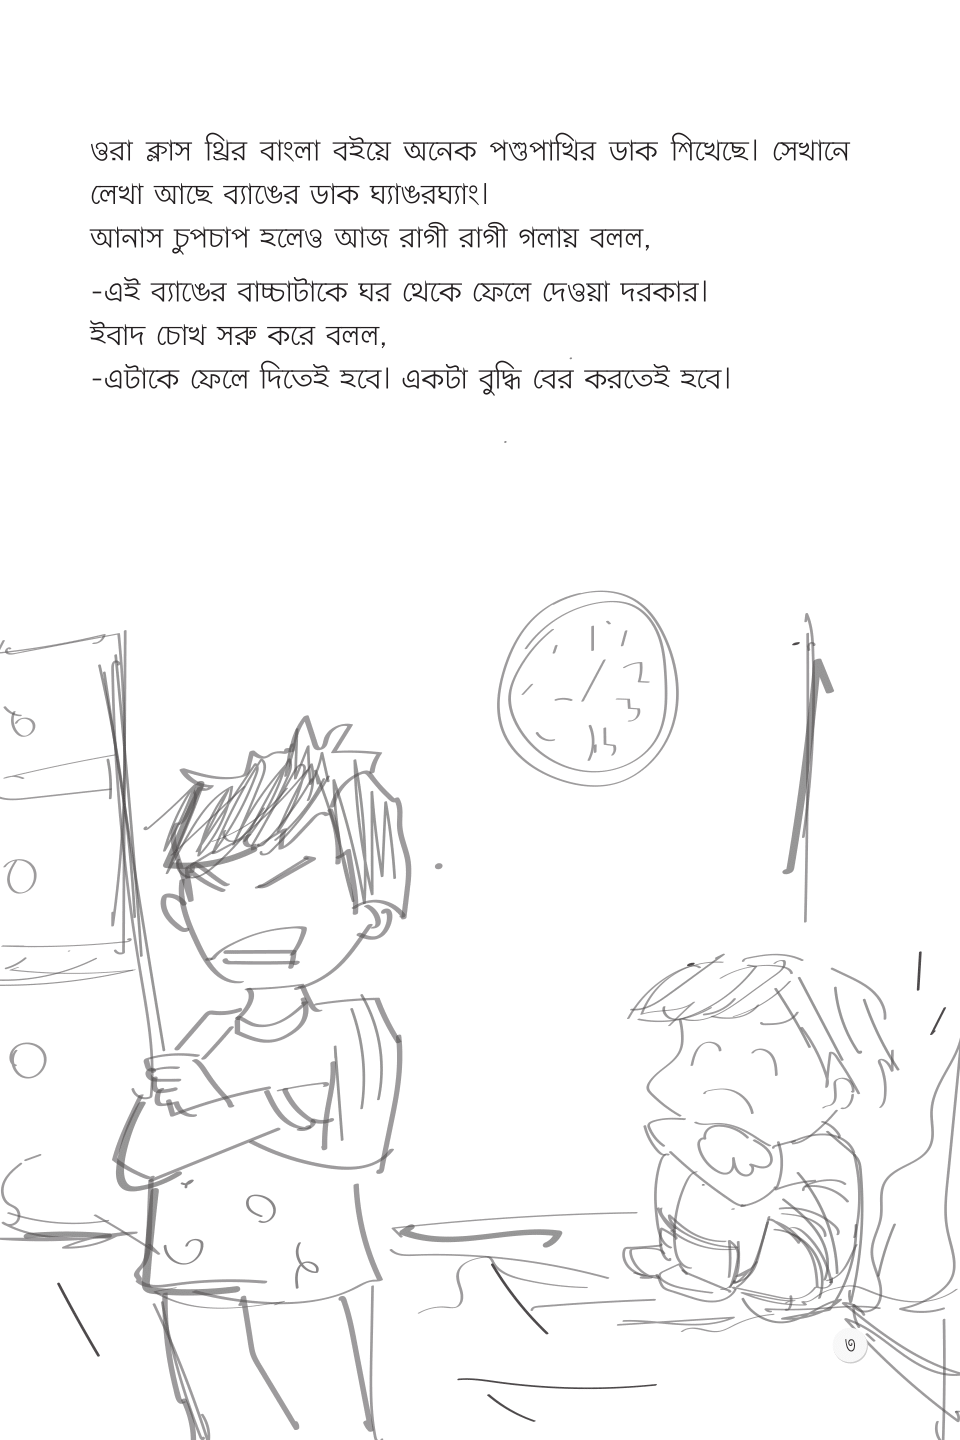 ওরা ক্লাস থ্রির বাংলা বইয়ে অনেক পশুপাখির ডাক শিখেছে। সেখানে
লেখা আছে ব্যাঙের ডাক ঘ্যাঙরঘ্যাং।
আনাস চুপচাপ হলেও আজ রাগী রাগী গলায় বলল,
-এই ব্যাঙের বাচ্চাটাকে ঘর থেকে ফেলে দেওয়া দরকার।
ইবাদ চোখ সরু করে বলল,
-এটাকে ফেলে দিতেই হবে। একটা বুদ্ধি বের করতেই হবে।
৩